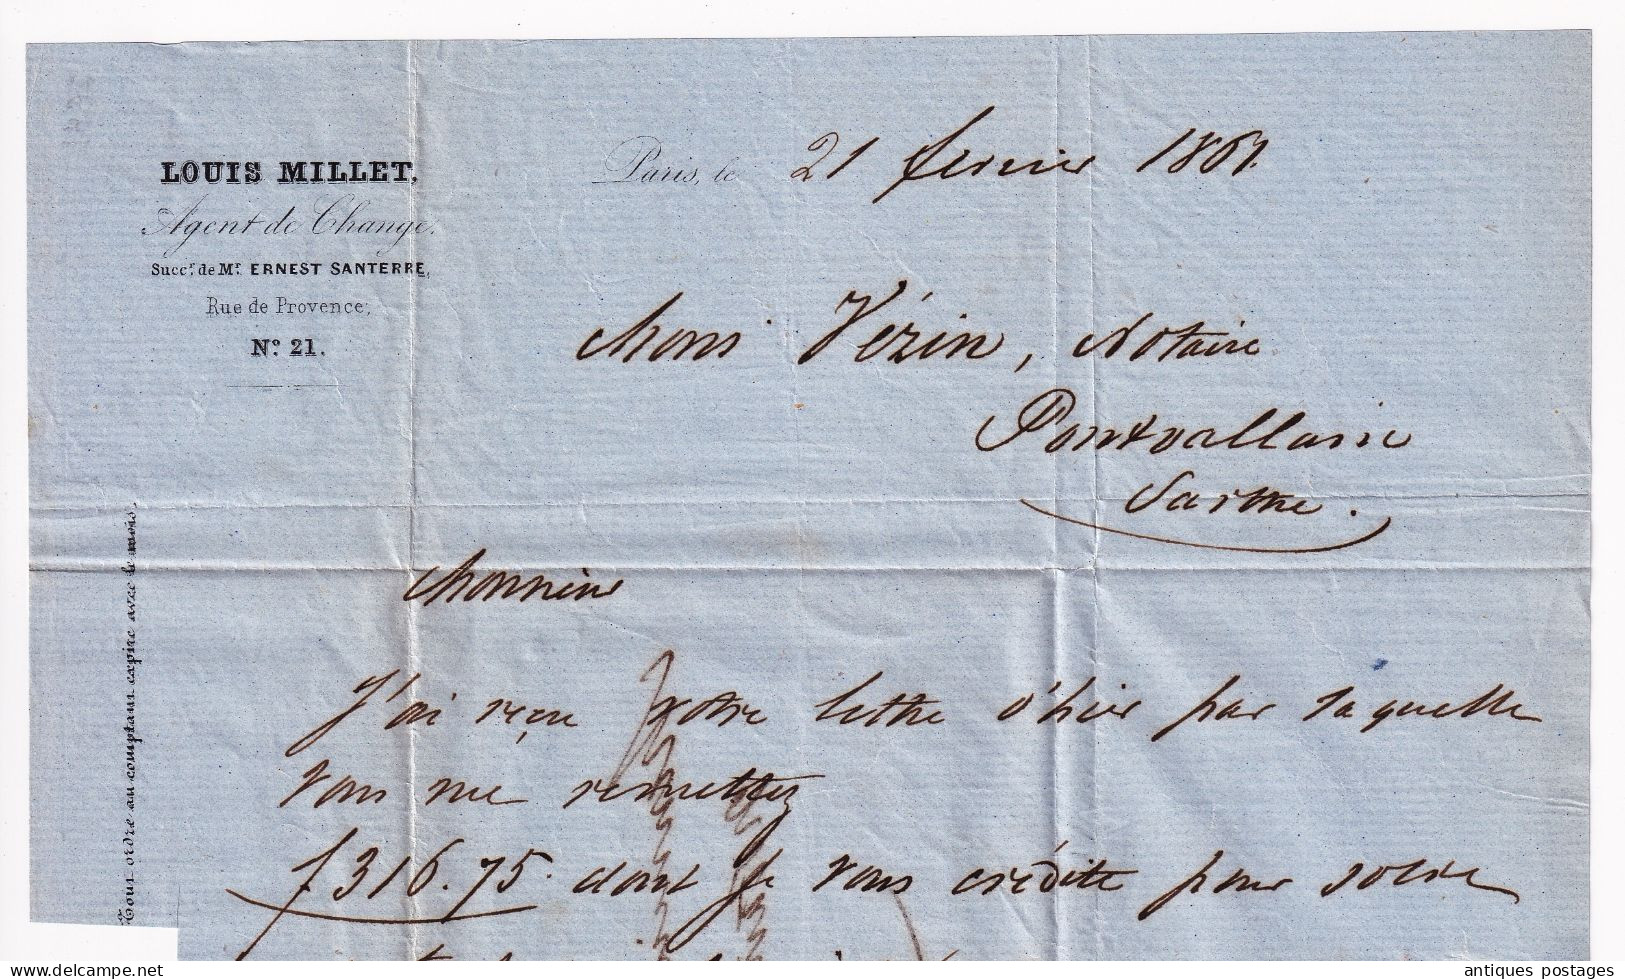 LOUIS MILLET,
Agent de Change.
Succr. de Mr. ERNEST SANTERRE,
Rue de Provence,
No. 21.
Paris, le 21 février 1867.
Mons Vézin, Notaire
Pontvallain
Sarthe.
Monsieur
J'ai reçu votre lettre d'hier par laquelle
vous me remettez
f 316.75. dont je vous crédite pour solde
Tout ordre au comptant expire avec le mois.
delcampe.net
antiques postages